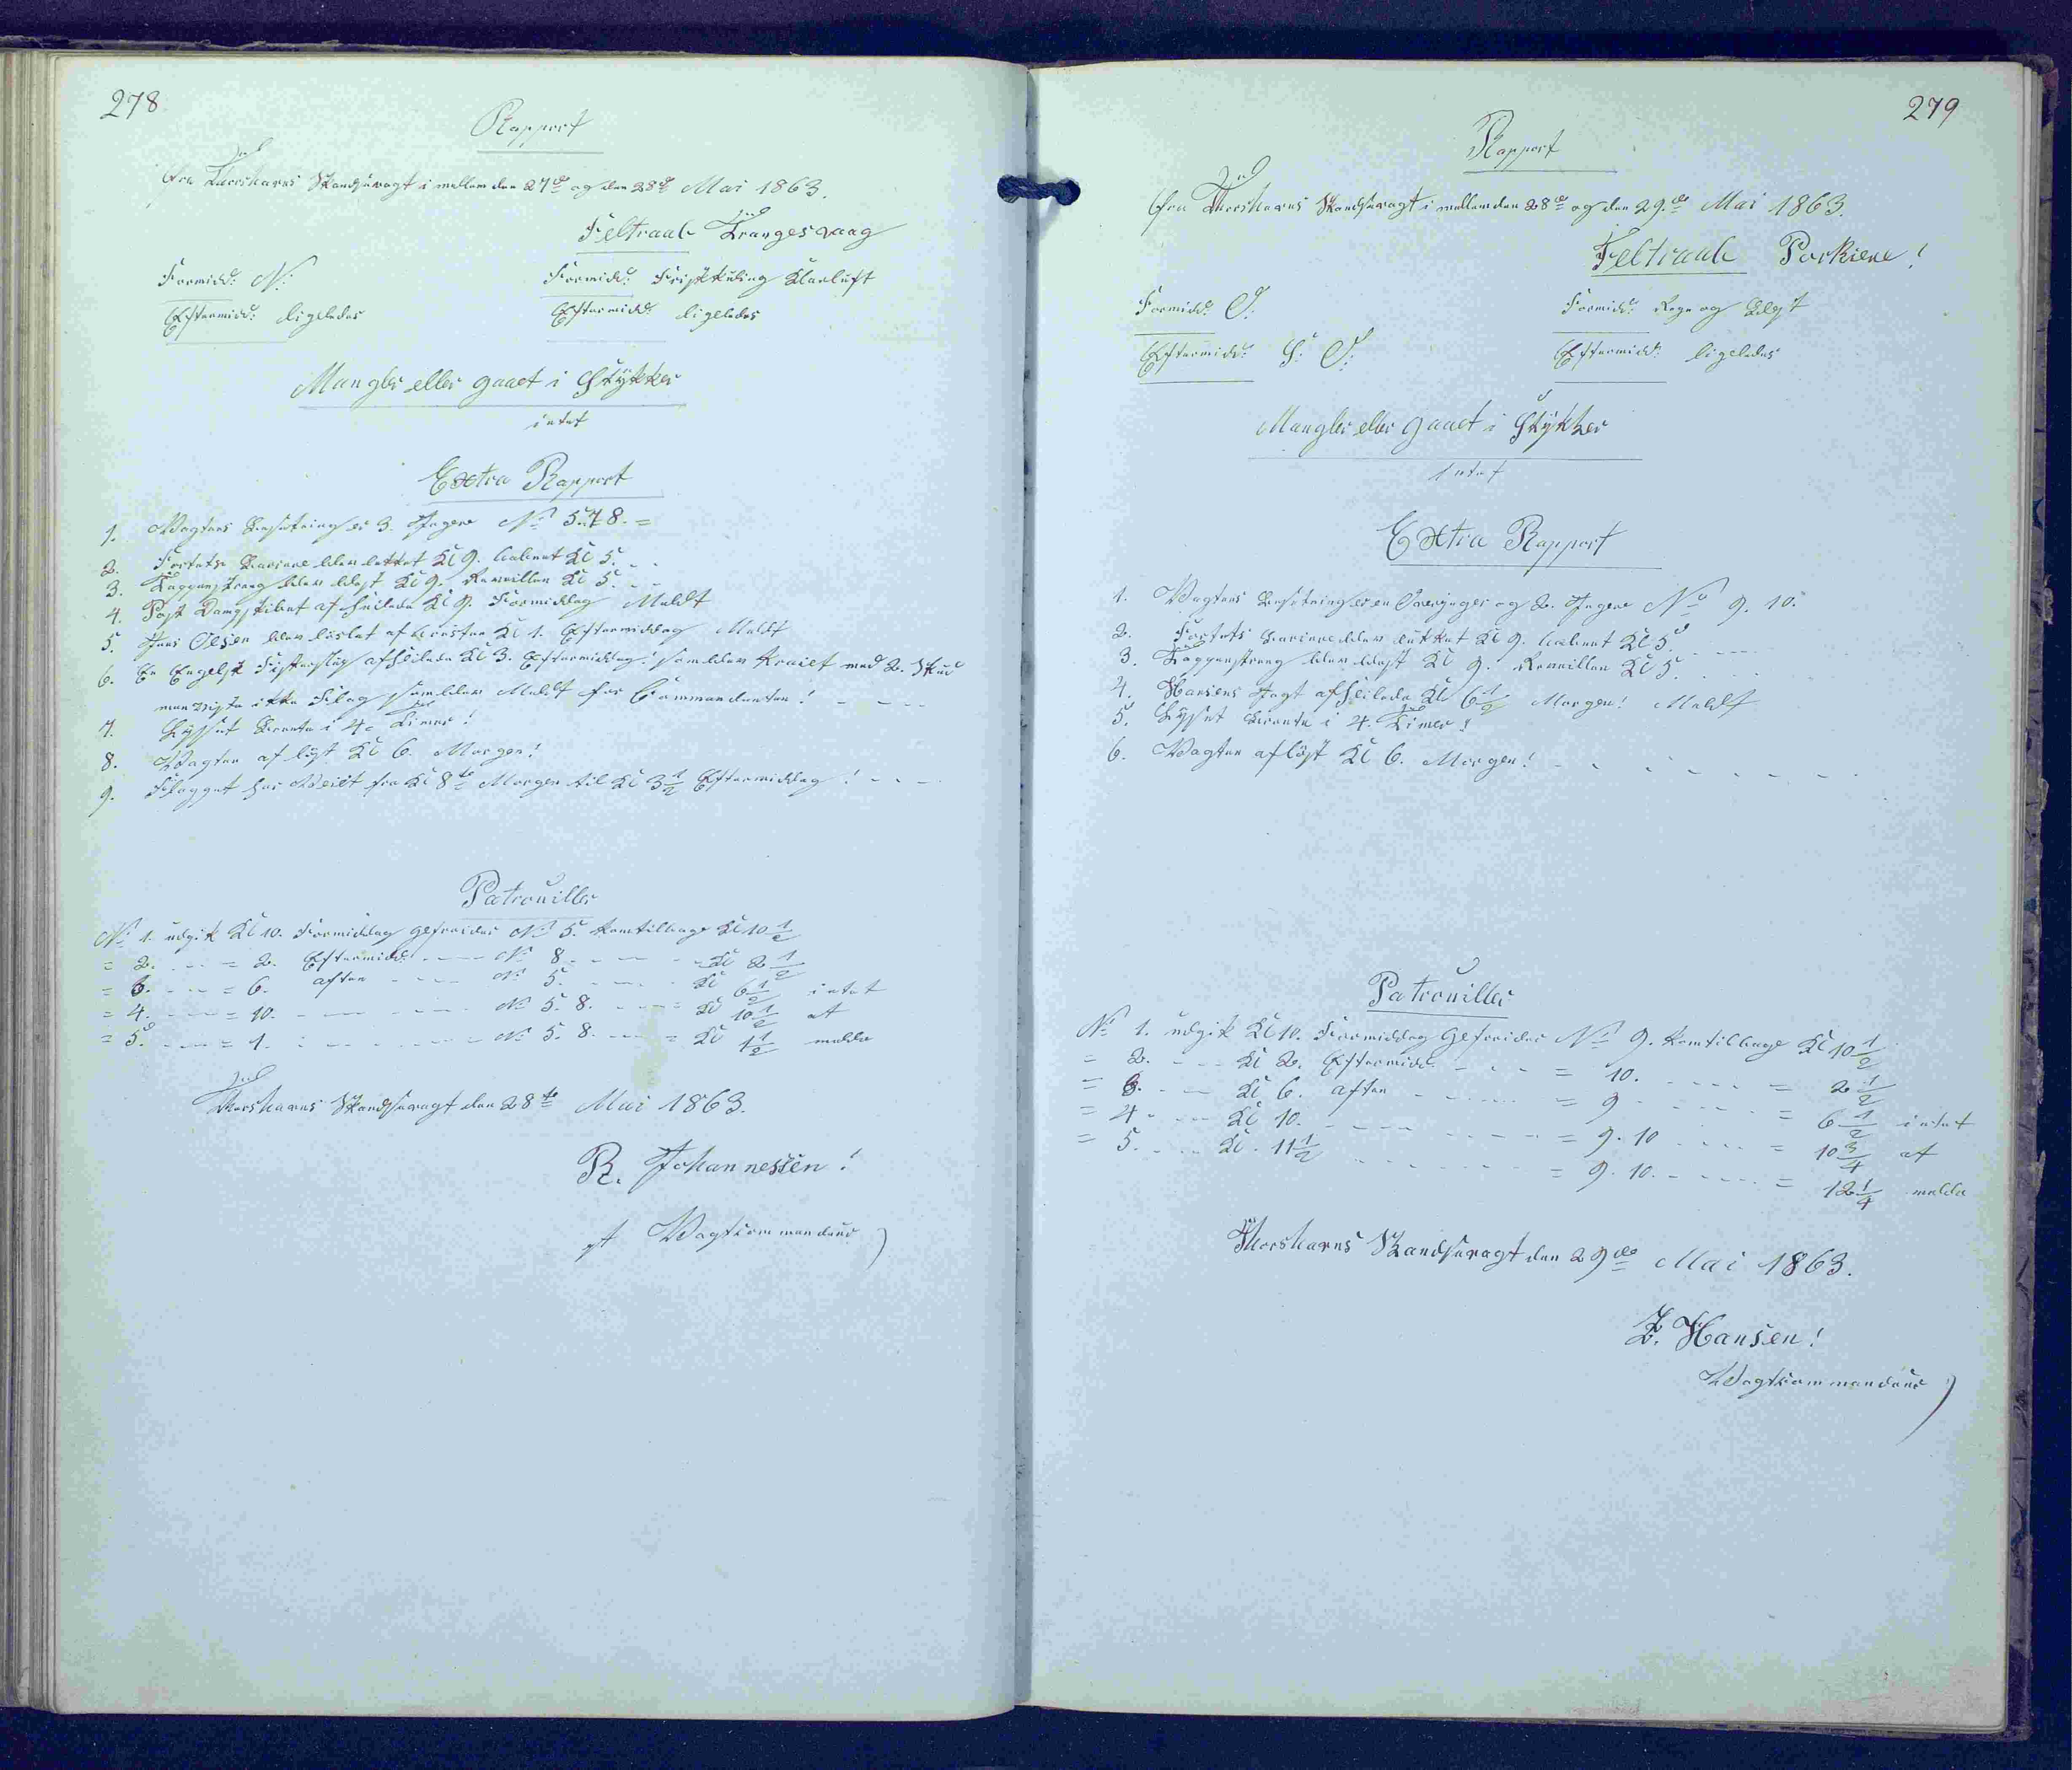 278
Rapport
fra Thorshavns Skandsevagt i mellem den 27de og den 28de Mai 1863.
Feltraab Trangesvaag
Formidd: N:
Formidd: Friskkuling Klarluft
Eftermidd: ligeledes
Eftermidd: ligeledes
Mangler eller gaaet i Stykker
intet
Extra Rapport
1. Vagtens Besætning er 3. Jægere No 5. 7. 8. =
2. Fortets Barriere blev lukket Kl 9. aabnet Kl 5. - -
3. Tappenstreg blev blæst Kl 9. Reveillen Kl 5 - -
4. Post Dampskibet afseilede Kl 9. Formiddag Meldt
5. Jens Olsen blev løslat af Arresten Kl 1. Eftermiddag Meldt
6. En Engelsk Fiskerslup afseilede Kl 3. Eftermiddag! som blev Praiet med 2. Skud
men viste ikke Flag som blev Meldt for Commandanten! - - - -
7. Lyset Brente i 4. Timer!
8. Vagten afløst Kl 6. Morgen!
9. Flagget har Vaiet fra Kl 8te Morgen til Kl 3 1/2 Eftermiddag! - - -
Patrouiller
No 1. udgik Kl 10. Formiddag Gefreider No 5. kom tilbage Kl 10 1/2
= 2. - - - = 2. Eftermidd. - - - No 8. - - - - Kl 2 1/2
= 3. - - - = 6. aften - - - No 5. - - - - Kl 6 1/2 intet
= 4. - - - = 10. - - - - - No 5. 8. - - - = Kl 10 1/2 at
= 5. - - - = 1. - - - - - No 5. 8. - - - = Kl 1 1/2 melde
Thorshavns Skandsevagt den 28de Mai 1863.
R. Johannessen!
Vagtkommandeur
279
Rapport
fra Thorshavns Skandsevagt i mellem den 28de og den 29de Mai 1863.
Feltraab Porkiere!
Formidd: O:
Formidd: Regn og Blæst
Eftermidd: S: O:
Eftermidd: ligeledes
Mangler eller gaaet i Stykker
intet
Extra Rapport
1. Vagtens Besætning er en Overjæger og 2. Jægere No 9. 10.
2. Fortets Barriere blev lukket Kl 9. aabnet Kl 5. - - -
3. Tappenstreg blev blæst Kl 9. Reveillen Kl 5. - - -
4. Hansens Jagt afseilede Kl 6 1/2 Morgen! Meldt
5. Lyset Brente i 4. Timer!
6. Vagten afløst Kl 6. Morgen! - - - - - - -
Patrouiller
No 1. udgik Kl 10. Formiddag Gefreider No 9. kom tilbage Kl 10 1/2
= 2. - - - Kl 2. Eftermidd. - - - = 10. - - - - = 2 1/2
= 3. - - - Kl 6. aften - - - - = 9 - - - - = 6 1/2 intet
= 4. - - - Kl 10. - - - - - = 9. 10 - - - - = 10 3/4 at
= 5. - - - Kl. 11 1/2 - - - - - = 9. 10. - - - - = 12 1/4 melde
Thorshavns Skandsevagt den 29de Mai 1863.
Z. Hansen!
Vagtkommandeur